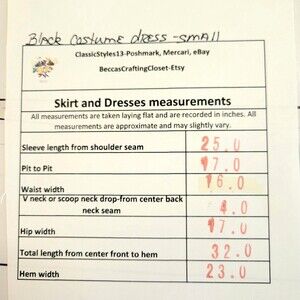 Black costume dress - small
ClassicStyles13-Poshmark, Mercari, eBay
BeccasCraftingCloset-Etsy
Skirt and Dresses measurements
All measurements are taken laying flat and are recorded in inches. All
measurements are approximate and may slightly vary.
Sleeve length from shoulder seam 25.0
Pit to Pit 17.0
Waist width 16.0
V neck or scoop neck drop-from center back
neck seam 4.0
Hip width 17.0
Total length from center front to hem 32.0
Hem width 23.0